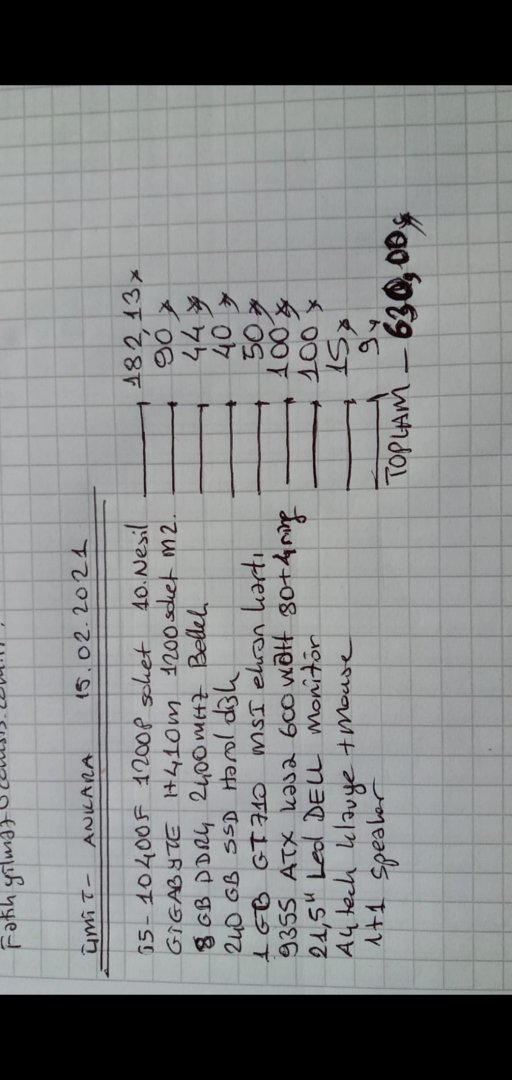 ÜMİT - ANKARA 15.02.2021
i5-10400F 1200P soket 10.Nesil 182,13
GİGABYTE H410M 1200soket M2. 90
8 GB DDR4 2400MHZ Bellek 44
240 GB SSD Hard disk 40
1 GB GT710 MSI ekran kartı 50
9355 ATX kasa 600 watt 80+ 100
21,5" Led DELL Monitör 100
A4tech klavye + Mouse 15
1+1 Speaker 9
TOPLAM - 630,00